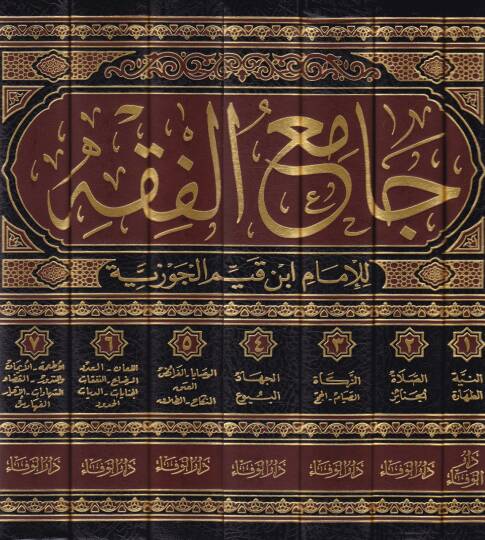 جامع الفقه
للإمام ابن قيم الجوزية
١
النية
الطهارة
٢
الصلاة
الجنائز
٣
الزكاة
الصيام - الحج
٤
الجهاد
البيوع
٥
الوصايا - الفرائض
العتق
النكاح - الطلاق
٦
اللعان - العدد
الرضاع - النفقات
الجنايات - الديات
الحدود
٧
الأطعمة - الأيمان
والنذور - القضاء
الشهادات - الإقرار
الفهارس
دار الوفاء
دار الوفاء
دار الوفاء
دار الوفاء
دار الوفاء
دار الوفاء
دار الوفاء